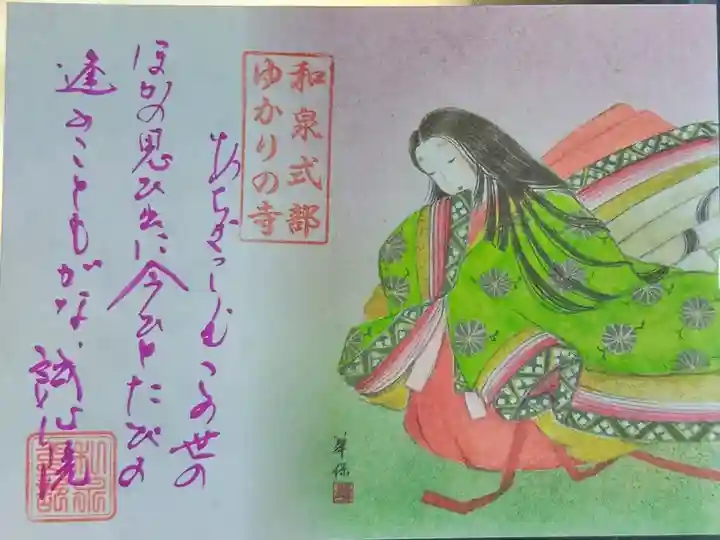 和泉式部
ゆかりの寺
あらざらむこの世の
ほかの思ひ出に今ひとたびの
逢ふこともがな
誠心院